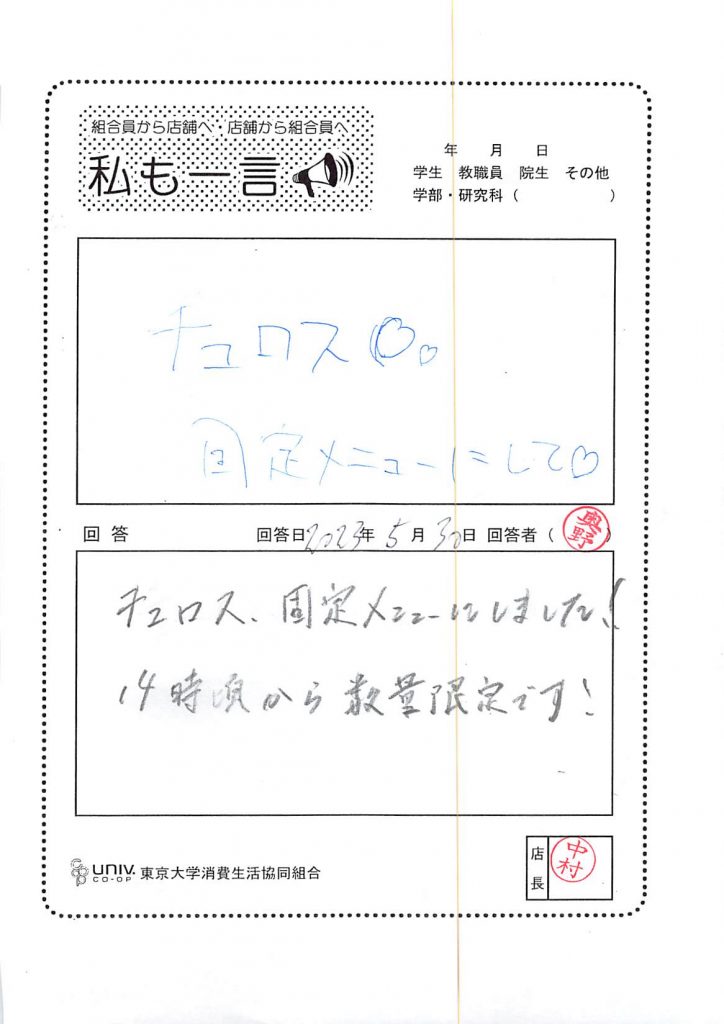 組合員から店舗へ・店舗から組合員へ
私も一言
年 月 日
学生 教職員 院生 その他
学部・研究科( )
チュロス♡♡
固定メニューにして♡
回答 回答日2023年5月30日 回答者(奥野)
チュロス、固定メニューにしました!
14時頃から数量限定です!
UNIV. CO-OP 東京大学消費生活協同組合
店長 中村